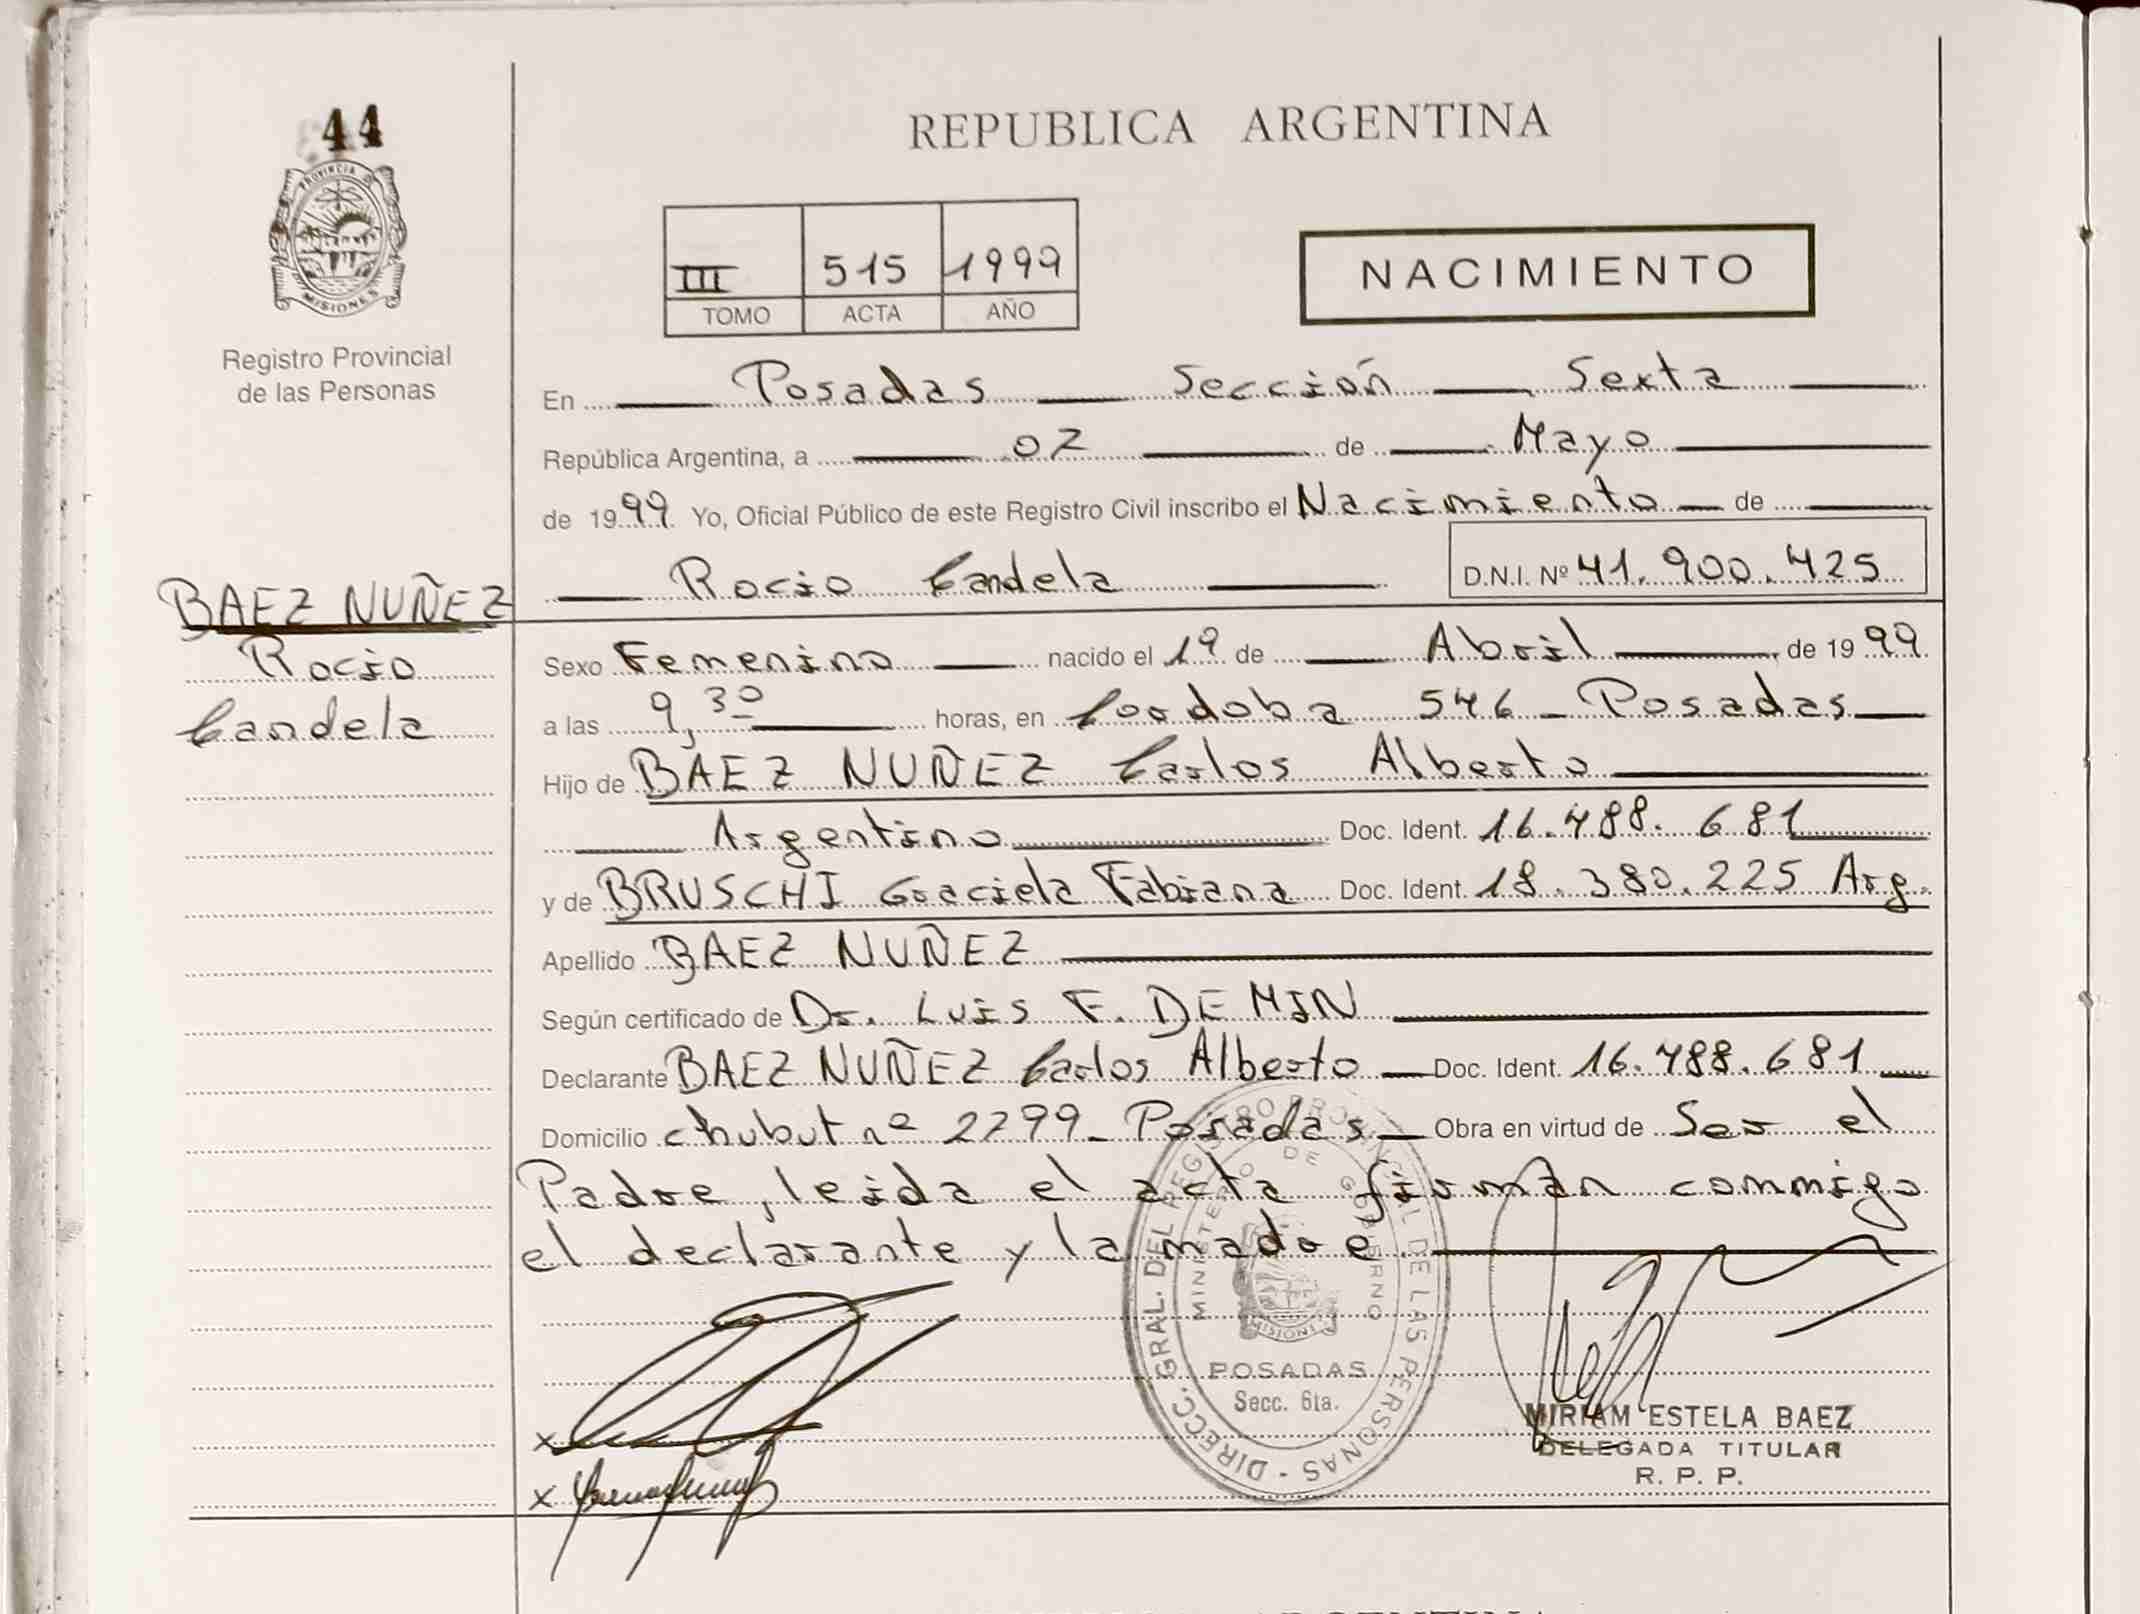 44
PROVINCIA D
MISIONES
Registro Provincial
de las Personas
BAEZ NUÑEZ
Rocio
Candela
REPUBLICA ARGENTINA
III 515 1999
TOMO ACTA AÑO
NACIMIENTO
En Posadas Sección Sexta
República Argentina, a 07 de Mayo
de 1999 Yo, Oficial Público de este Registro Civil inscribo el Nacimiento de
Rocio Candela D.N.I. Nº 41.900.425
Sexo Femenino nacido el 19 de Abril de 1999
a las 9,30 horas, en Cordoba 546 - Posadas
Hijo de BAEZ NUÑEZ Carlos Alberto
Argentino Doc. Ident. 16.488.681
y de BRUSCHI Graciela Fabiana Doc. Ident. 18.380.225 Arg.
Apellido BAEZ NUÑEZ
Según certificado de Dr. Luis F. DE MIN
Declarante BAEZ NUÑEZ Carlos Alberto Doc. Ident. 16.488.681
Domicilio chubut nº 2799 - Posadas Obra en virtud de Ser el
Padre, leida el acta firman conmigo
el declarante y la madre
DIRECC. GRAL. DEL REGISTRO PROVINCIAL DE LAS PERSONAS -
MINISTERIO DE GOBIERNO
MISIONES
POSADAS
Secc. 6ta.
x
x
MIRIAM ESTELA BAEZ
DELEGADA TITULAR
R. P. P.